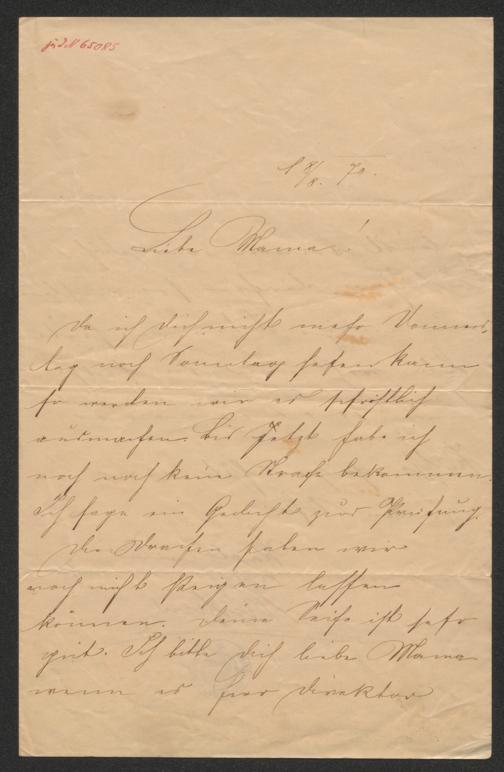 J. N. 65085
18/8. 70.
Liebe Mama!
Da ich Dich nicht mehr Donners-
tag noch Sonntag sehen kann
so werden wir es schriftlich
ausmachen. Bis Jetzt habe ich
noch noch keine Strafe bekommen.
Ich sage ein Gedicht zur Prüfung.
Die Drachen haben wir
noch nicht steigen lassen
können. Deine Seife ist sehr
gut. Ich bitte Dich liebe Mama
wenn es Herr Direktor